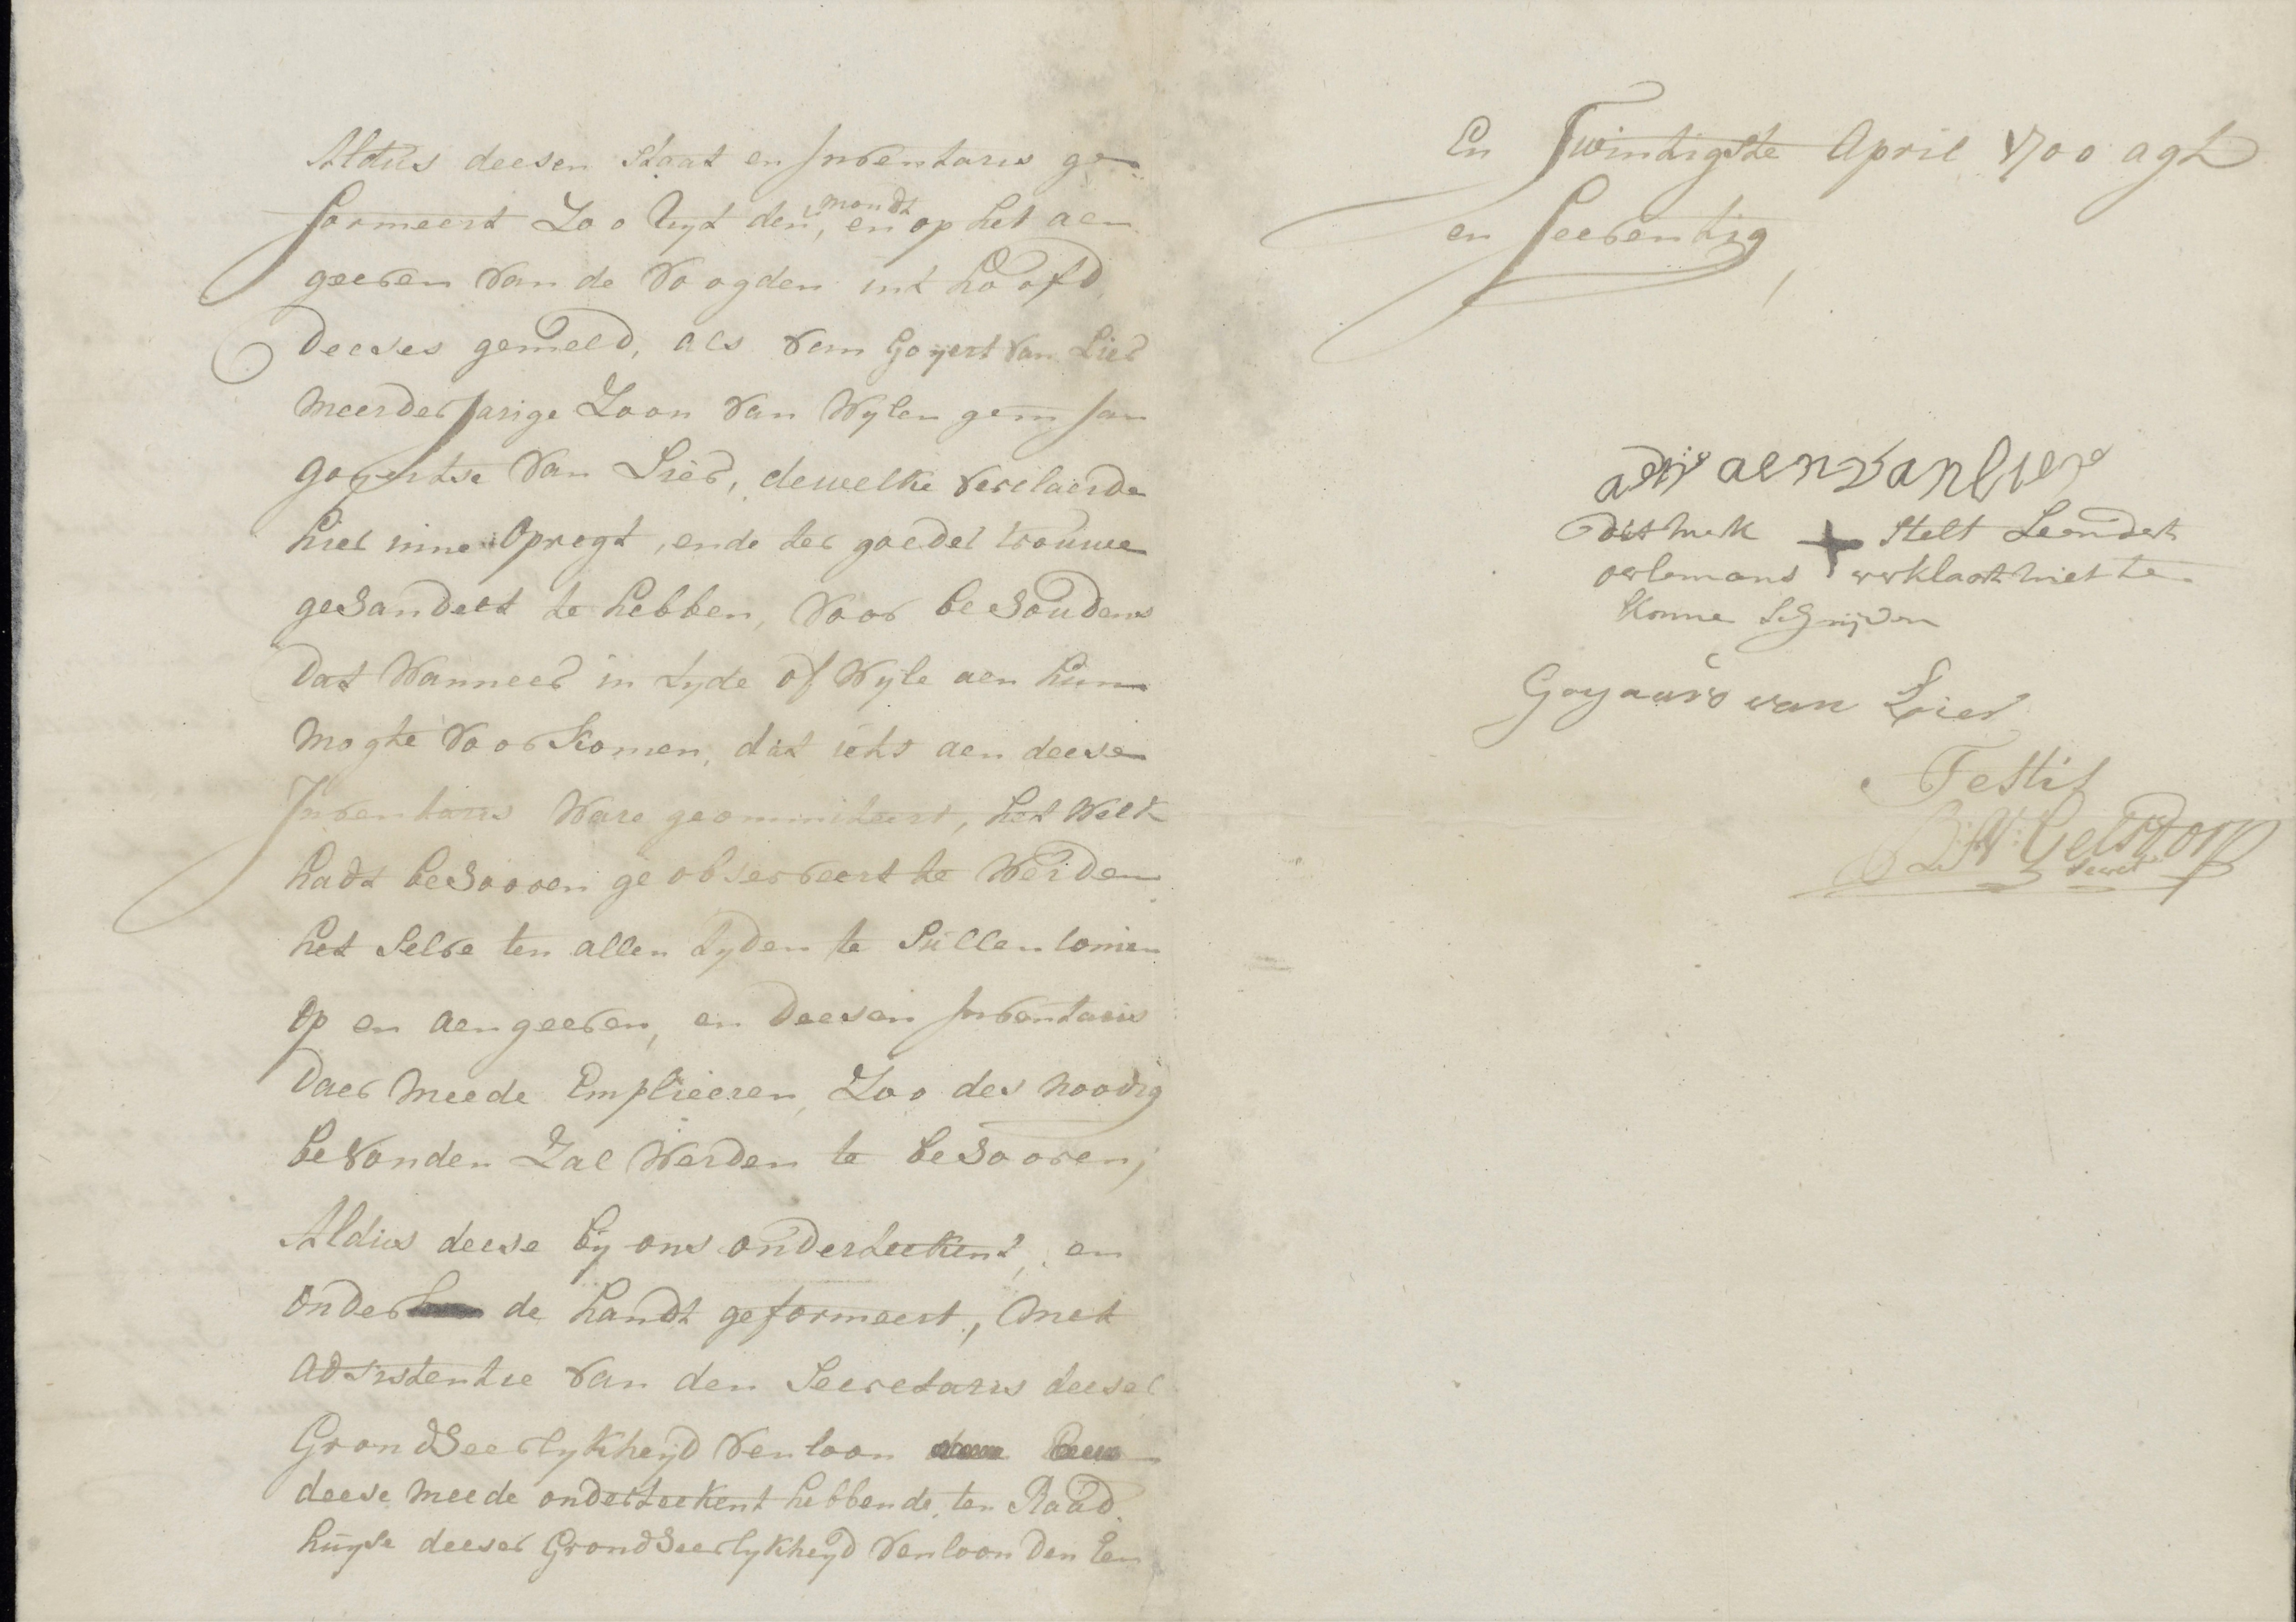 Aldus deesen Staat en Inventaris ge-
formeert Zoo Uyt den, mondt en op het aen
geeven van de Voogden int hoofd
deeses gemeld, als van Goyert van Lier
meerderjarige Zoon van Wylen gem Jan
Goyertse van Lier, dewelke verclaerde
hier inne Opregt, ende ter goeder trouwe
gehandelt te hebben, Voor behoudens
dat Wanneer in tyde of Wyle aen hun
mogte Voorkomen, dat iets aen deese
Inventaris Ware geommiteert, het Welk
hadt behooren geobserveert te Werden
het Selve ten allen tyden te Sullen komen
Op en aengeeven, en deesen Inventaris
daer meede Emplieeren, Zoo des noodig
bevonden Zal Werden te behooren,
Aldus deese by ons onderteekent, en
onder de handt geformeert, met
adsistentie van den Secretaris deeser
Grondheerlykheyd Venloon
deese meede onderteekent hebbende, ten Raad
huyse deeser Grondheerlykheyd Venloon den Een
En Twintigste April 1700 agt
en Seeventig,
adriaen van lier
dit merk + stelt Leendert
oerlemans verklaart niet te
konne Schrijven
Goyaars van Lier
Testis
Secret